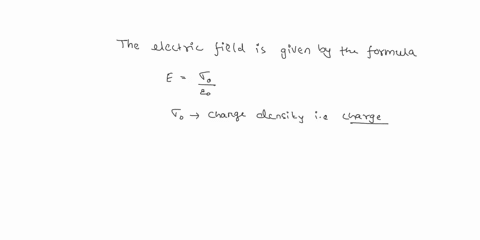 The electric field is given by the formula
E = σ₀/ε₀
σ₀ → change density i.e charge